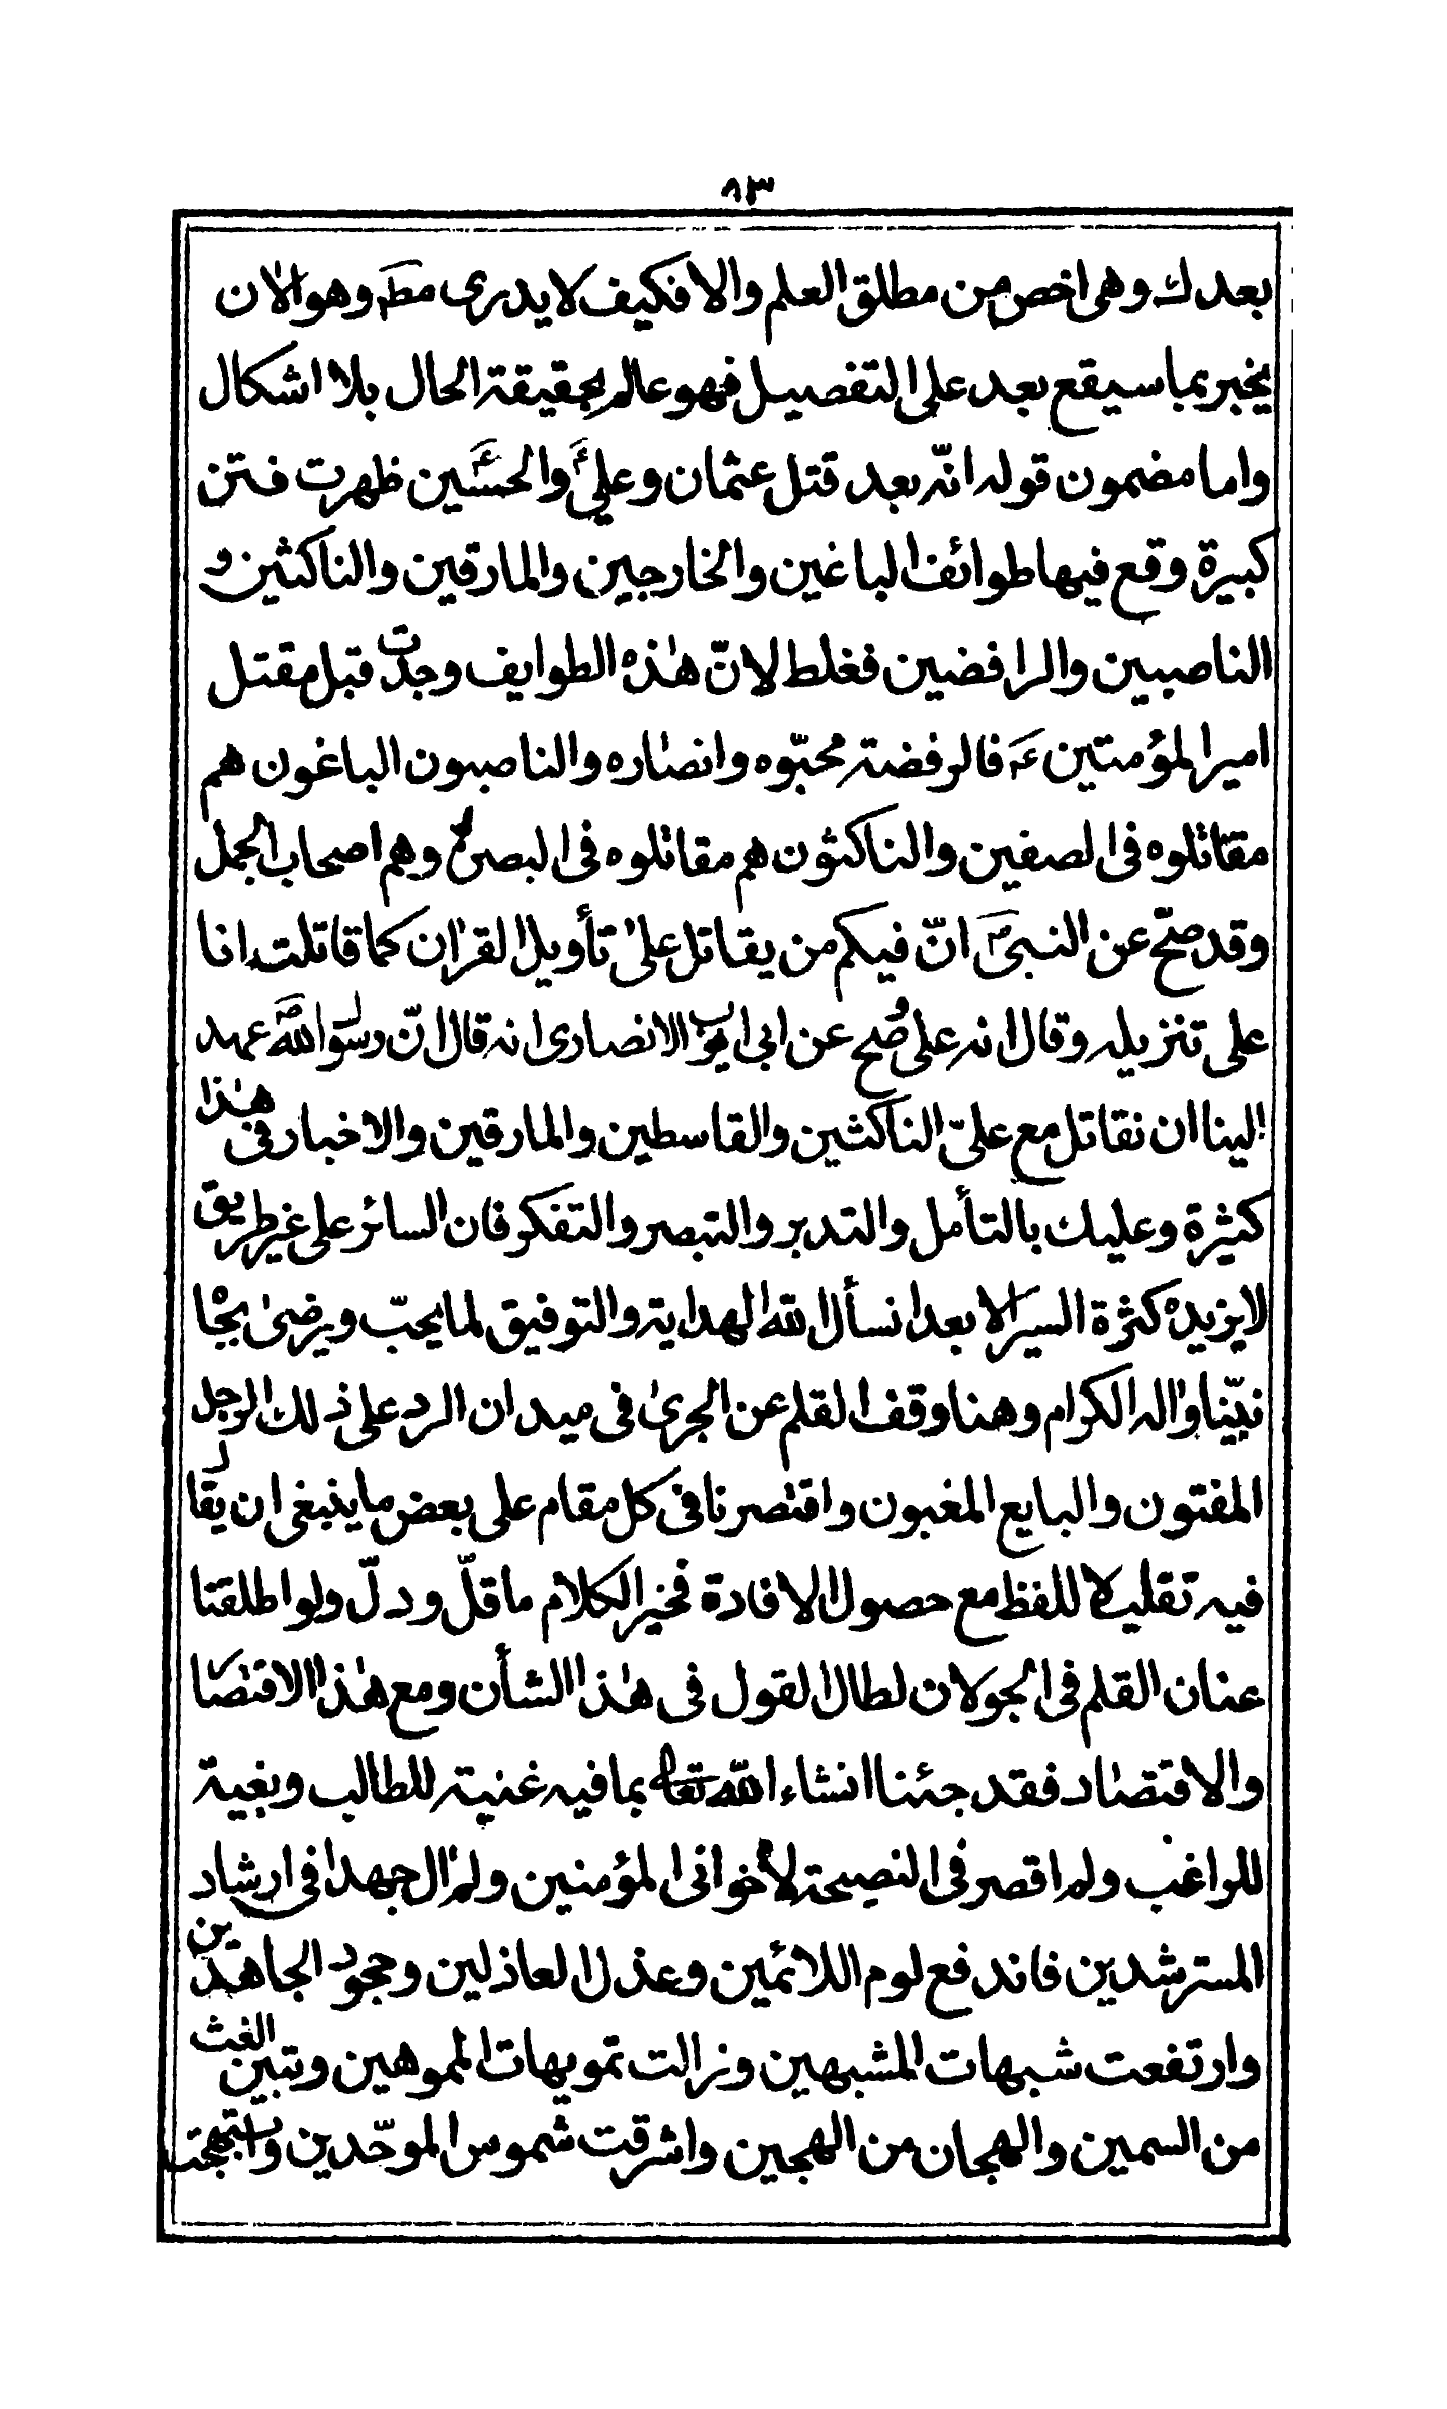 ٨٣
بعدك وهى اخص من مطلق العلم والا فكيف لا يدرى مطـ وهو الان
يخبر بما سيقع بعد على التفصيل فهو عالم بحقيقة الحال بلا اشكال
واما مضمون قوله انّه بعد قتل عثمان وعلي ع والحسين ع ظهرت فتن
كبيرة وقع فيها طوائف الباغين والخارجين والمارقين والناكثين و
الناصبين والرافضين فغلط لانّ هٰذه الطوايف وجدت قبل مقتل
امير المؤمنين ع فالرفضة محبّوه وانصاره والناصبون الباغون هم
مقاتلوه فى الصفين والناكثون هم مقاتلوه فى البصرة وهم اصحاب الجمل
وقد صحّ عن النبى ص انّ فيكم من يقاتل على تأويل القران كما قاتلت انا
على تنزيله وقال انه على وصح عن ابى ايوب الانصارى انه قال انّ رسول الله ص عهد
الينا ان نقاتل مع علىّ الناكثين والقاسطين والمارقين والاخبار فى هٰذا
كثيرة وعليك بالتأمل والتدبر والتبصر والتفكر فان السائر على غير طريق
لا يزيده كثرة السير الا بعدا نسأل الله الهداية والتوفيق لما يحبّ ويرضىٰ بجاه
نبيّنا واٰله الكرام وهنا وقف القلم عن الجرىٰ فى ميدان الرد على ذلك الرجل
المفتون والبايع المغبون واقتصرنا فى كل مقام على بعض ما ينبغى ان يقال
فيه تقليلا للفظ مع حصول الافادة فخير الكلام ما قلّ ودلّ ولو اطلقنا
عنان القلم فى الجولان لطال القول فى هٰذا الشأن ومع هٰذا الاقتصار
والاقتصاد فقد جئنا انشاء الله تعالى بما فيه غنية للطالب وبغية
للراغب ولم اقصر فى النصيحة لاخوانى المؤمنين ولم ال جهدا فى ارشاد
المسترشدين فاندفع لوم اللائمين وعذل العاذلين وجحود الجاهدين
وارتفعت شبهات المشبهين وزالت تمويهات المموهين وتبين الغث
من السمين والهجان من الهجين واشرقت شموس الموحّدين وابتهجت